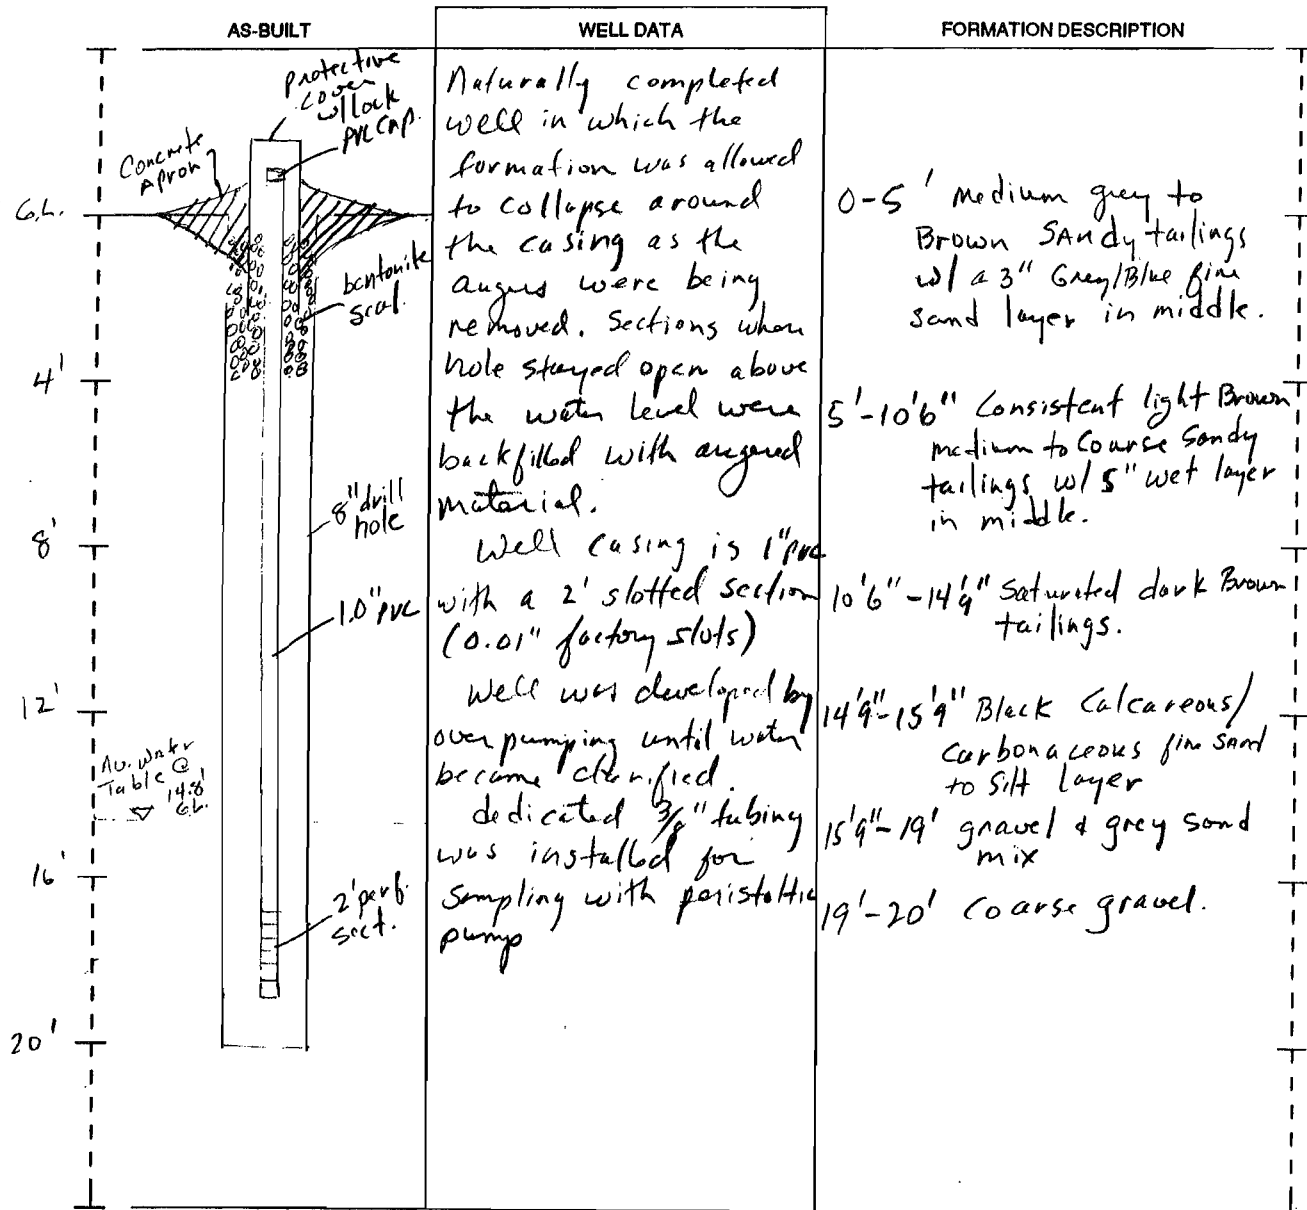 AS-BUILT
protective
cover
w/lock
PVC cap.
Concrete
Apron
G.L.
bentonite
seal.
4'
8" drill
hole
8'
1.0" PVC
12'
Av. Water
Table @
14.8'
G.L.
16'
2' perf.
sect.
20'
WELL DATA
Naturally completed
well in which the
formation was allowed
to collapse around
the casing as the
augers were being
removed. Sections where
hole stayed open above
the water level were
backfilled with augered
material.
Well casing is 1" pvc
with a 2' slotted section
(0.01" factory slots)
Well was developed by
overpumping until water
became clarified.
dedicated 3/8" tubing
was installed for
sampling with peristaltic
pump
FORMATION DESCRIPTION
0-5' Medium grey to
Brown SANDy tailings
w/ a 3" Grey/Blue fine
sand layer in middle.
5'-10'6" Consistent light Brown
medium to Coarse Sandy
tailings w/ 5" wet layer
in middle.
10'6"-14'9" Saturated dark Brown
tailings.
14'9"-15'9" Black Calcareous/
Carbonaceous fine SAND
to Silt layer
15'9"-19' gravel & grey sand
mix
19'-20' Coarse gravel.